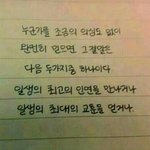 누군가를 조금의 의심도 없이
완벽히 믿으면 그 결말은
다음 두가지중 하나이다
일생의 최고의 인연을 만나거나
일생의 최대의 교훈을 얻거나.